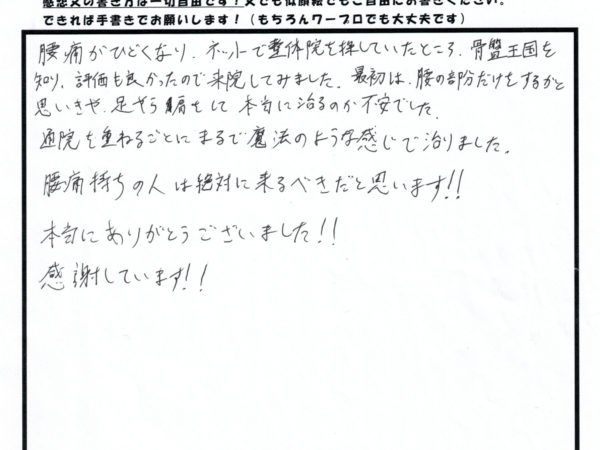 感想文の書き方は一切自由です！文でも似顔絵でもご自由にお書きください。
できれば手書きでお願いします！（もちろんワープロでも大丈夫です）
腰痛がひどくなり、ネットで整体院を探していたところ、骨盤王国を
知り、評価も良かったので来院してみました。最初は、腰の部分だけをするかと
思いきや、足やら肩をして本当に治るのか不安でした。
通院を重ねるごとにまるで魔法のような感じで治りました。
腰痛持ちの人は絶対に来るべきだと思います!!
本当にありがとうございました!!
感謝しています!!